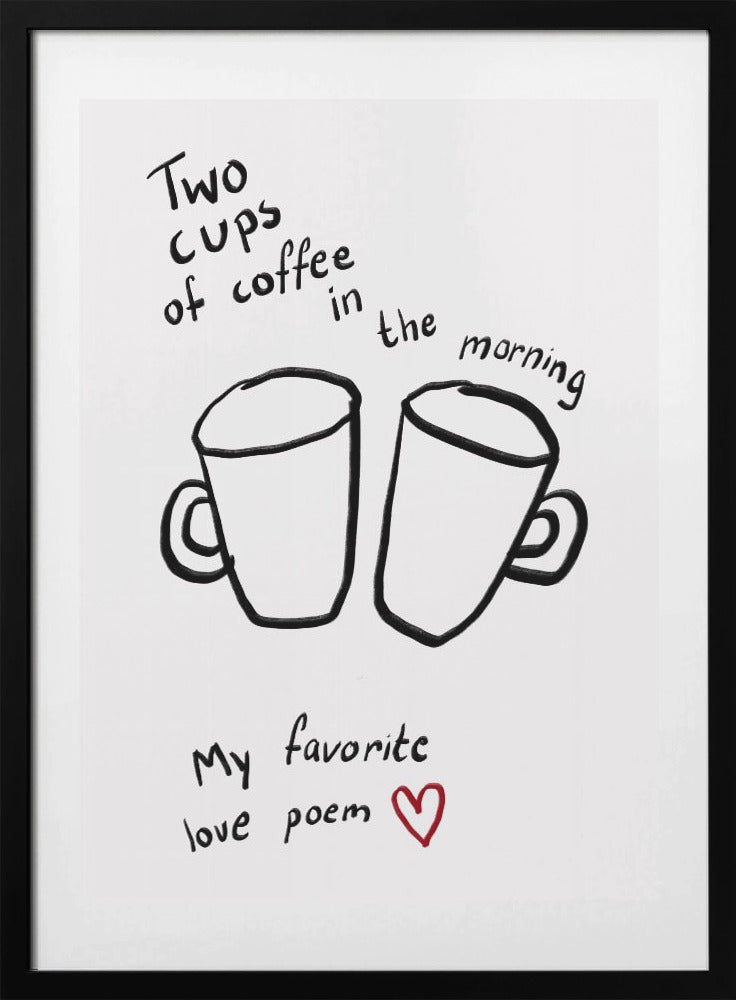 Two
cups
of coffee
in the morning
My favorite
love poem